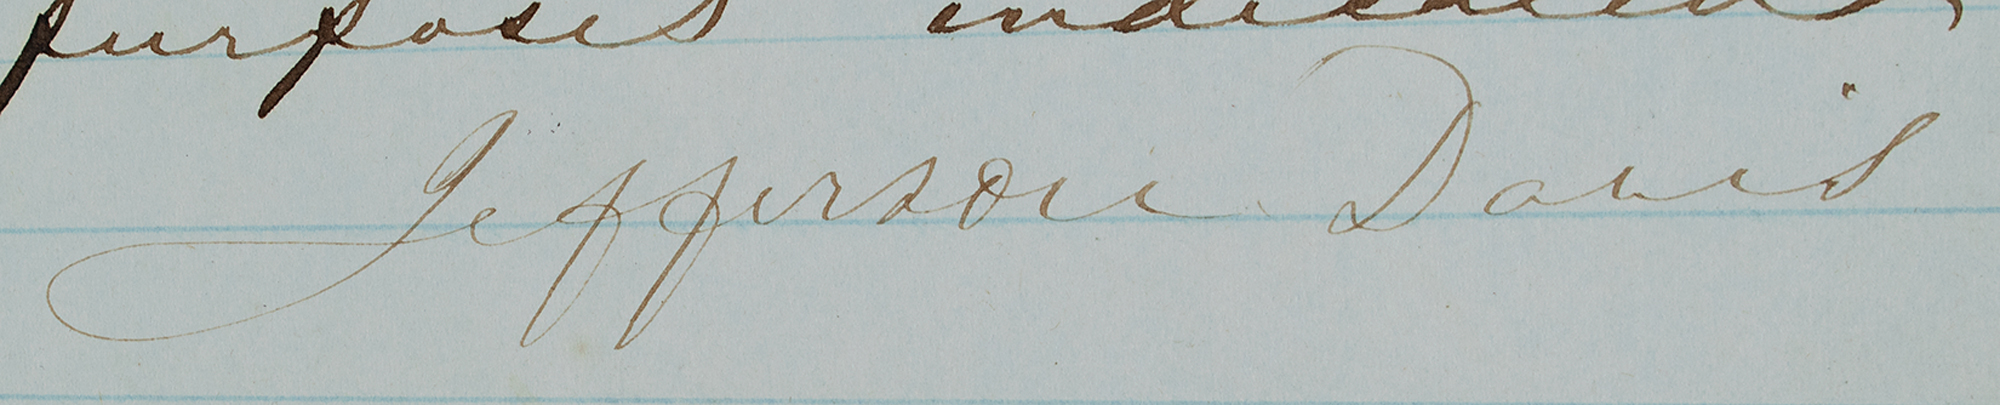 purposes indicated.
Jefferson Davis